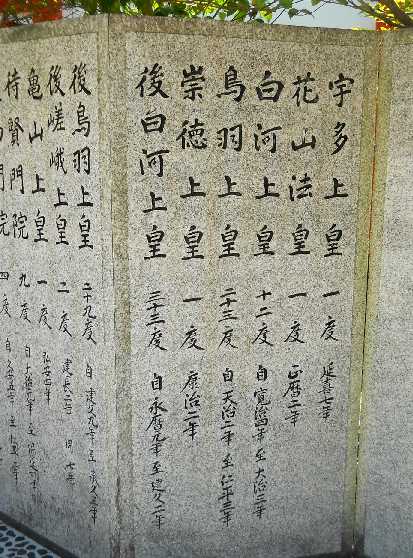 宇多上皇 一度 延喜七年
花山法皇 一度 正暦二年
白河上皇 十二度 自 寛治四年 至 大治三年
鳥羽上皇 二十三度 自 天治二年 至 仁平三年
崇徳上皇 一度 康治二年
後白河上皇 三十三度 自 永暦元年 至 建久二年
後鳥羽上皇 二十九度 自 建久九年 至 承久三年
後嵯峨上皇 二度 建長二年 同 七年
亀山上皇 一度 弘安四年
待賢門院 九度 自 至
門院 四度 自 至